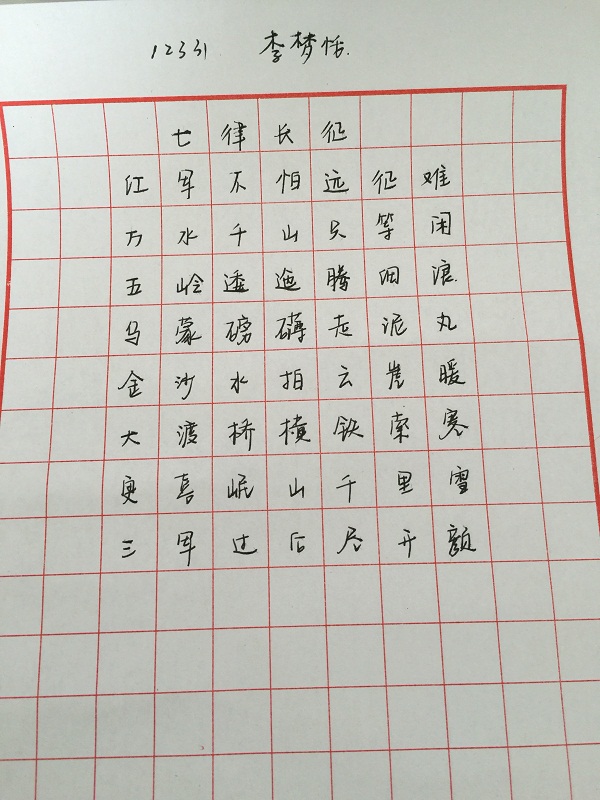 12331 李梦恬.
七律长征
红军不怕远征难
万水千山只等闲
五岭逶迤腾细浪
乌蒙磅礴走泥丸
金沙水拍云崖暖
大渡桥横铁索寒
更喜岷山千里雪
三军过后尽开颜